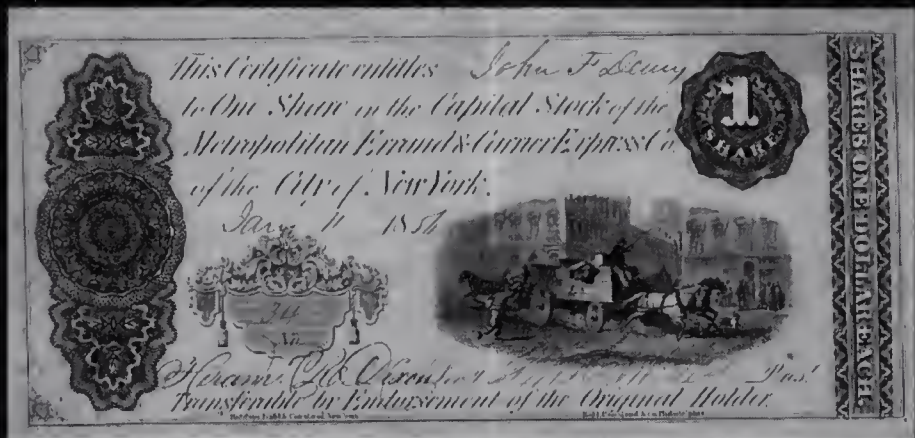 This Certificate entitles John F Demy
to One Share in the Capital Stock of the
Metropolitan Errand & Carrier Express Co.
of the City of New York.
Jany 11 185
1
SHARE
SHARES ONE DOLLAR EACH
34
No.
Hiram Dixon Prest
Transferable by Endorsement of the Original Holder.